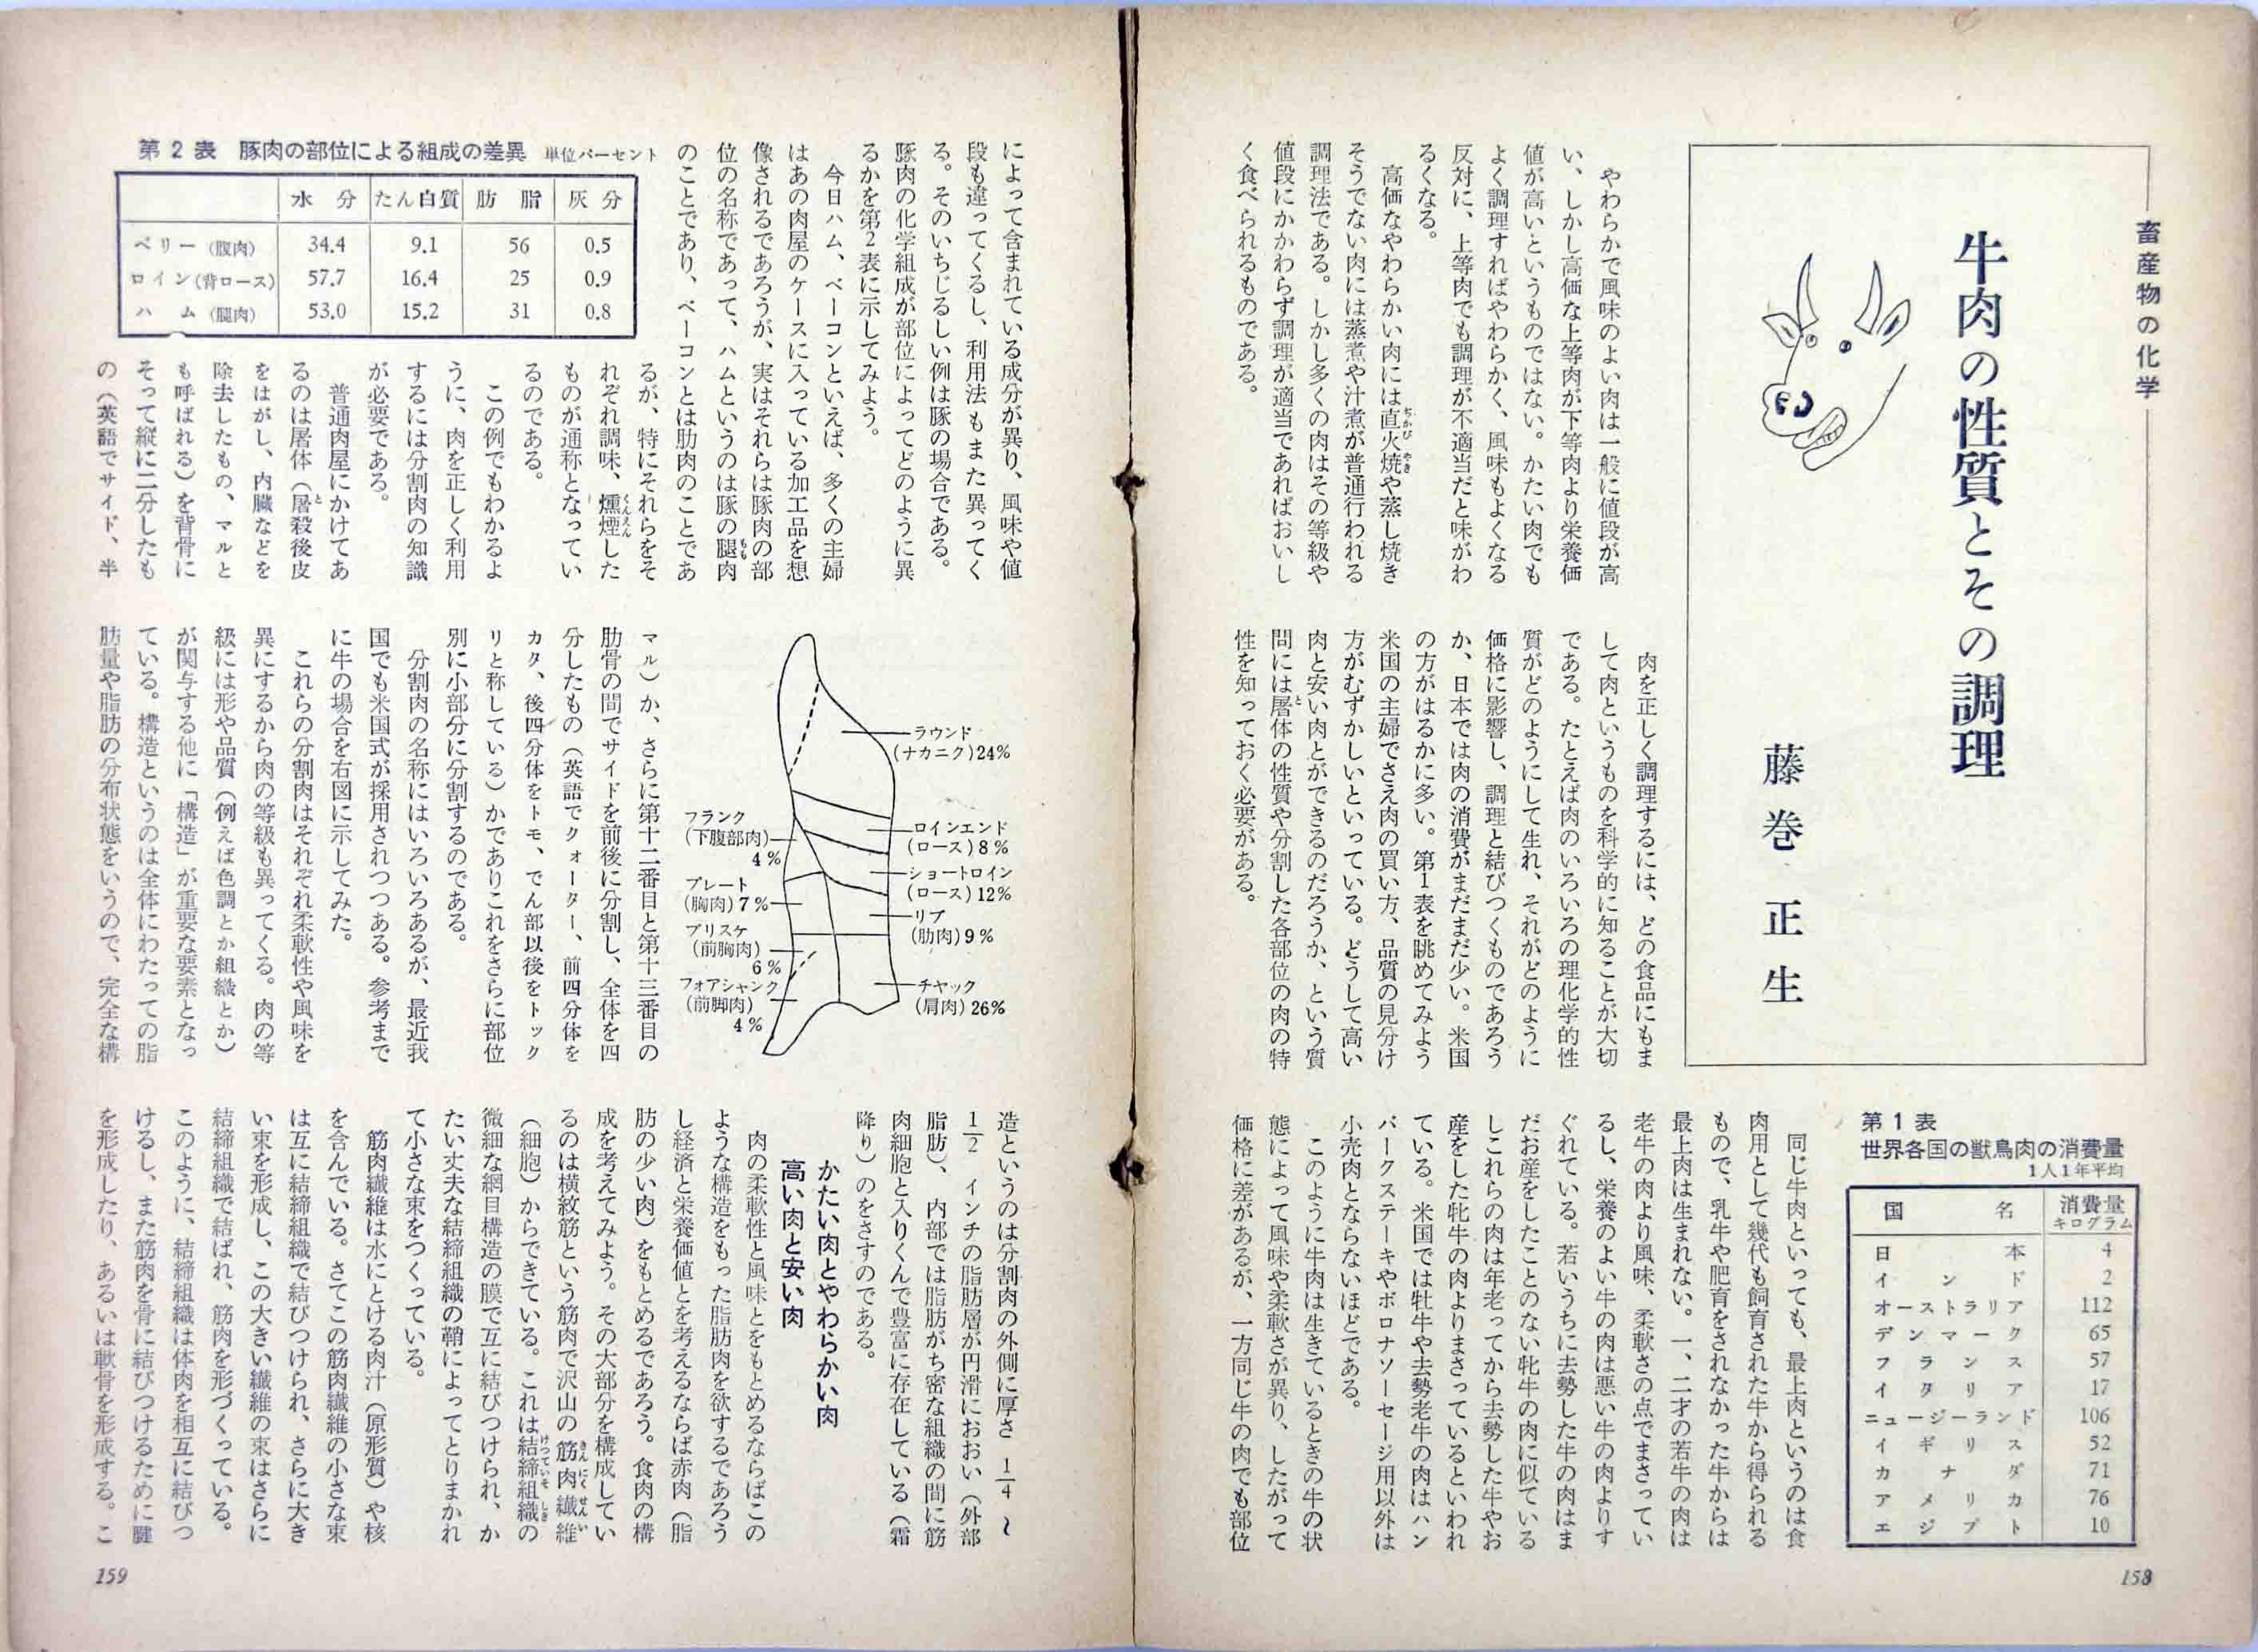 畜産物の化学
牛肉の性質とその調理
藤巻正生
やわらかで風味のよい肉は一般に値段が高
い、しかし高価な上等肉が下等肉より栄養価
値が高いというものではない。かたい肉でも
よく調理すればやわらかく、風味もよくなる
反対に、上等肉でも調理が不適当だと味がわ
るくなる。
高価なやわらかい肉には直火焼や蒸し焼き
そうでない肉には蒸煮や汁煮が普通行われる
調理法である。しかし多くの肉はその等級や
値段にかかわらず調理が適当であればおいし
く食べられるものである。
肉を正しく調理するには、どの食品にもま
して肉というものを科学的に知ることが大切
である。たとえば肉のいろいろの理化学的性
質がどのようにして生れ、それがどのように
価格に影響し、調理と結びつくものであろう
か、日本では肉の消費がまだまだ少い。米国
の方がはるかに多い。第1表を眺めてみよう
米国の主婦でさえ肉の買い方、品質の見分け
方がむずかしいといっている。どうして高い
肉と安い肉とができるのだろうか、という質
問には屠体の性質や分割した各部位の肉の特
性を知っておく必要がある。
第1表
世界各国の獣鳥肉の消費量
1人1年平均
国名 消費量キログラム
日本 4
インド 2
オーストラリア 112
デンマーク 65
フランス 57
イタリア 17
ニュージーランド 106
イギリス 52
カナダ 71
アメリカ 76
エジプト 10
同じ牛肉といっても、最上肉というのは食
肉用として幾代も飼育された牛から得られる
もので、乳牛や肥育をされなかった牛からは
最上肉は生まれない。一、二才の若牛の肉は
老牛の肉より風味、柔軟さの点でまさってい
るし、栄養のよい牛の肉は悪い牛の肉よりす
ぐれている。若いうちに去勢した牛の肉はま
だお産をしたことのない牝牛の肉に似ている
しこれらの肉は年老ってから去勢した牛やお
産をした牝牛の肉よりまさっているといわれ
ている。米国では牡牛や去勢老牛の肉はハン
バークステーキやボロナソーセージ用以外は
小売肉とならないほどである。
このように牛肉は生きているときの牛の状
態によって風味や柔軟さが異り、したがって
価格に差があるが、一方同じ牛の肉でも部位
158
によって含まれている成分が異り、風味や値
段も違ってくるし、利用法もまた異ってく
る。そのいちじるしい例は豚の場合である。
豚肉の化学組成が部位によってどのように異
るかを第2表に示してみよう。
今日ハム、ベーコンといえば、多くの主婦
はあの肉屋のケースに入っている加工品を想
像されるであろうが、実はそれらは豚肉の部
位の名称であって、ハムというのは豚の腿肉
のことであり、ベーコンとは肋肉のことであ
第2表 豚肉の部位による組成の差異 単位パーセント
水分 たん白質 肪脂 灰分
ベリー(腹肉) 34.4 9.1 56 0.5
ロイン(背ロース) 57.7 16.4 25 0.9
ハム(腿肉) 53.0 15.2 31 0.8
るが、特にそれらをそ
れぞれ調味、燻煙した
ものが通称となってい
るのである。
この例でもわかるよ
うに、肉を正しく利用
するには分割肉の知識
が必要である。
普通肉屋にかけてあ
るのは屠体(屠殺後皮
をはがし、内臓などを
除去したもの、マルと
も呼ばれる)を背骨に
そって縦に二分したも
の(英語でサイド、半
ラウンド
(ナカニク)24%
ロインエンド
(ロース)8%
ショートロイン
(ロース)12%
リブ
(肋肉)9%
チャック
(肩肉)26%
フランク
(下腹部肉)
4%
プレート
(胸肉)7%
ブリスケ
(前胸肉)
6%
フォアシャンク
(前脚肉)
4%
マル)か、さらに第十二番目と第十三番目の
肋骨の間でサイドを前後に分割し、全体を四
分したもの(英語でクォーター、前四分体を
カタ、後四分体をトモ、でん部以後をトック
リと称している)かでありこれをさらに部位
別に小部分に分割するのである。
分割肉の名称にはいろいろあるが、最近我
国でも米国式が採用されつつある。参考まで
に牛の場合を右図に示してみた。
これらの分割肉はそれぞれ柔軟性や風味を
異にするから肉の等級も異ってくる。肉の等
級には形や品質(例えば色調とか組織とか)
が関与する他に「構造」が重要な要素となっ
ている。構造というのは全体にわたっての脂
肪量や脂肪の分布状態をいうので、完全な構
造というのは分割肉の外側に厚さ1/4〜
1/2インチの脂肪層が円滑におおい(外部
脂肪)、内部では脂肪がち密な組織の間に筋
肉細胞と入りくんで豊富に存在している(霜
降り)のをさすのである。
かたい肉とやわらかい肉
高い肉と安い肉
肉の柔軟性と風味とをもとめるならばこの
ような構造をもった脂肪肉を欲するであろう
し経済と栄養価値とを考えるならば赤肉(脂
肪の少い肉)をもとめるであろう。食肉の構
成を考えてみよう。その大部分を構成してい
るのは横紋筋という筋肉で沢山の筋肉繊維
(細胞)からできている。これは結締組織の
微細な網目構造の膜で互に結びつけられ、か
たい丈夫な結締組織の鞘によってとりまかれ
て小さな束をつくっている。
筋肉繊維は水にとける肉汁(原形質)や核
を含んでいる。さてこの筋肉繊維の小さな束
は互に結締組織で結びつけられ、さらに大き
い束を形成し、この大きい繊維の束はさらに
結締組織で結ばれ、筋肉を形づくっている。
このように、結締組織は体肉を相互に結びつ
けるし、また筋肉を骨に結びつけるために腱
を形成したり、あるいは軟骨を形成する。こ
159